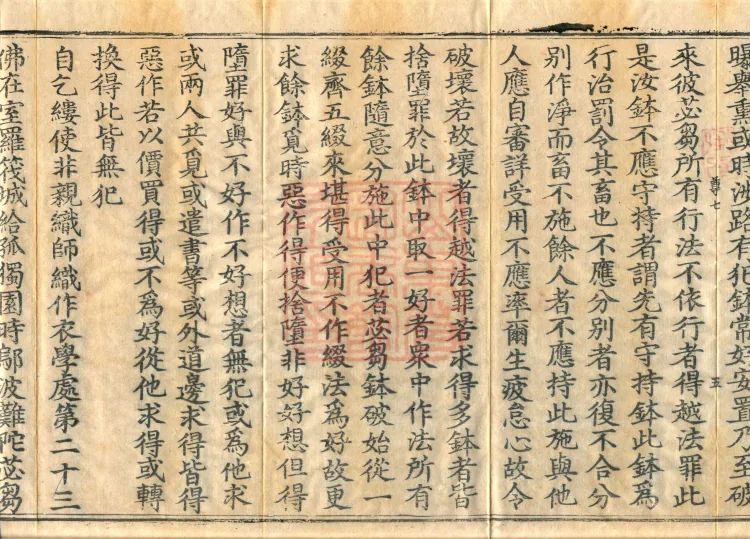 曝舉熏或時涉路有犯鉢常好安置乃至破
來彼苾芻所有行法不依行者得越法罪此
是汝鉢不應守持者謂先有守持鉢此鉢為
行治罰令其畜也不應分別者亦復不合分
別作淨而畜不施餘人者不應持此施與他
人應自審詳受用不應率爾生疲怠心故令
破壞若故壞者得越法罪若求得多鉢者皆
捨墮罪於此鉢中取一好者眾中作法所有
餘鉢隨意分施此中犯者苾芻鉢破始從一
綴齊五綴來堪得受用不作綴法為好故更
求餘鉢覓時惡作得便捨墮非好好想但得
墮罪好與不好作不好想者無犯或為他求
或兩人共覓或遣書等或外道邊求得皆得
惡作若以價買得或不為好從他求得或轉
換得此皆無犯
自乞縷使非親織師織作衣學處第二十三
佛在室羅筏城給孤獨園時鄔波難陀苾芻
五